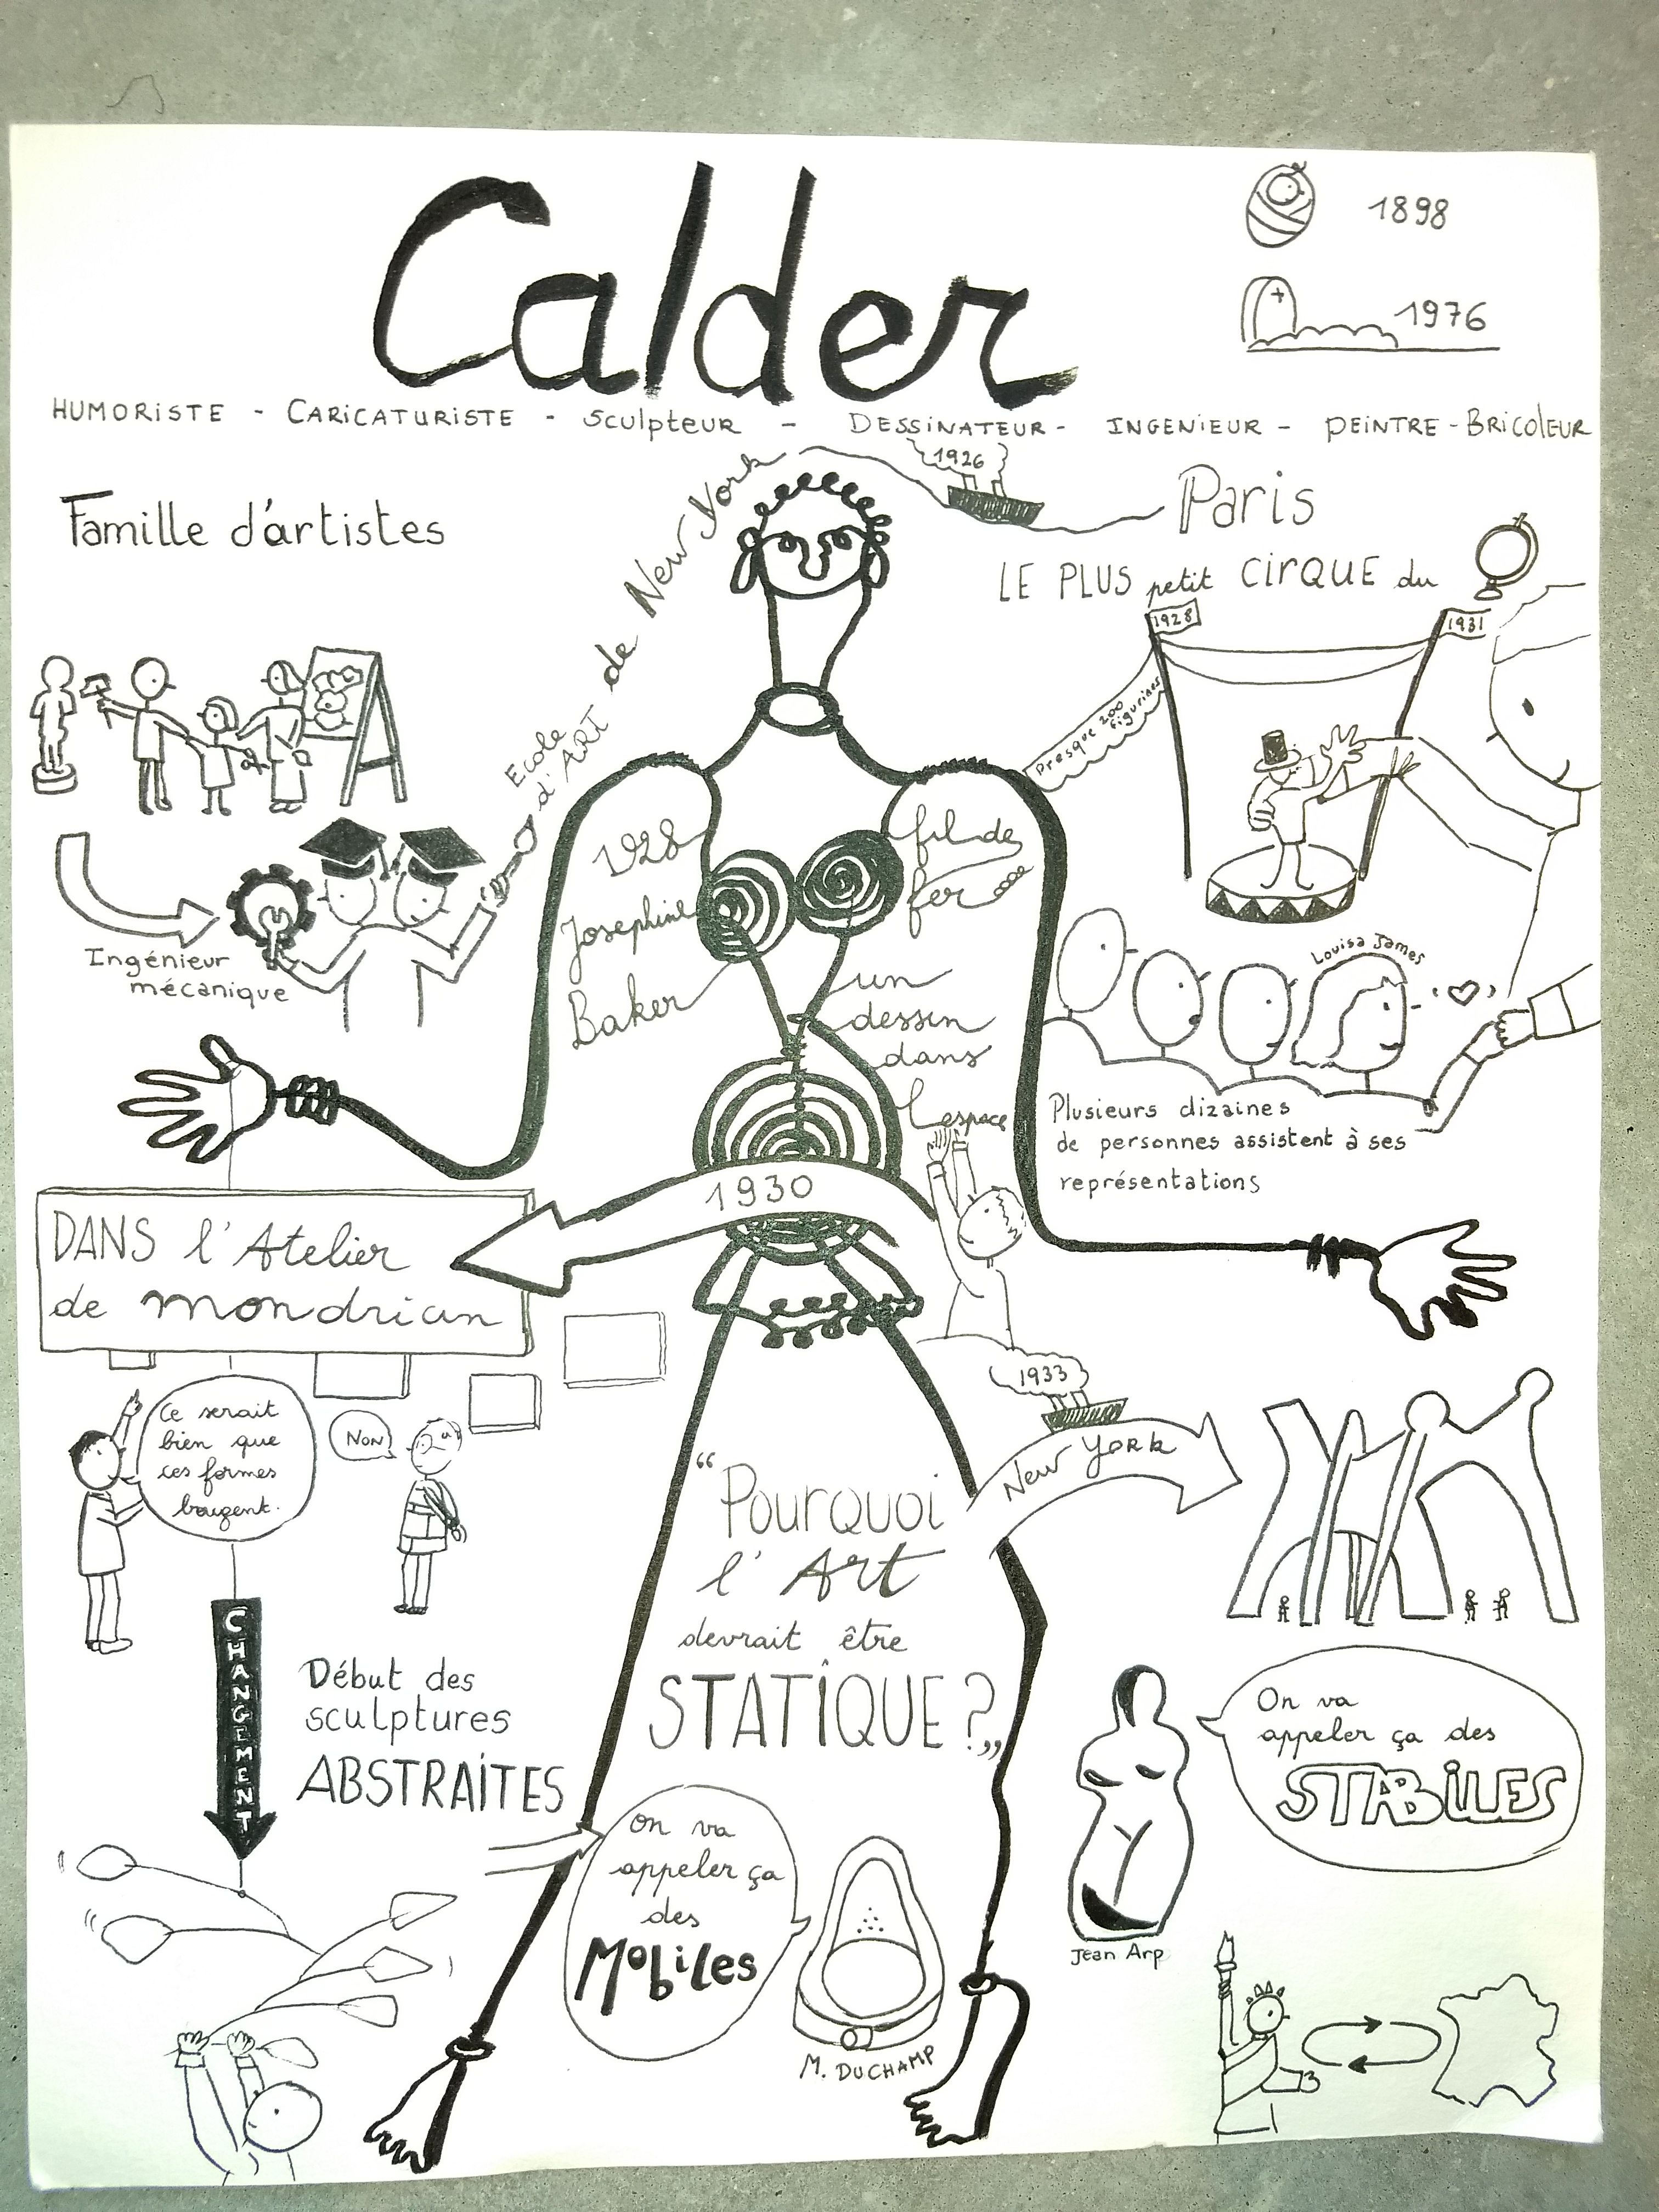 Calder
1898
1976
HUMORISTE - CARICATURISTE - Sculpteur - DESSINATEUR - INGENIEUR - PEINTRE - BRICOLEUR
Famille d'artistes
Ingénieur
mécanique
Ecole
d'ART
de New York
1926
Paris
LE PLUS petit CIRQUE du
1928
1931
Presque 200
figurines
1928
Josephine
Baker
fil de
fer
un
dessin
dans
l'espace
Louisa James
Plusieurs dizaines
de personnes assistent à ses
représentations
1930
DANS l'Atelier
de mondrian
Ce serait
bien que
ces formes
bougent.
NON
CHANGEMENT
Début des
sculptures
ABSTRAITES
1933
New York
"Pourquoi
l'Art
devrait être
STATIQUE ?"
On va
appeler ça
des
Mobiles
M. DUCHAMP
On va
appeler ça des
STABILES
Jean Arp